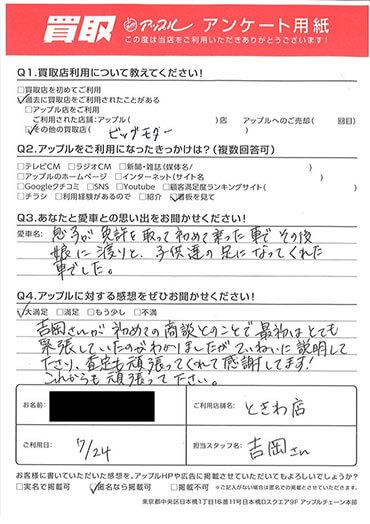 買取 アップル アンケート用紙
この度は当店をご利用いただきありがとうございます!
Q1.買取店利用について教えてください!
□買取店を初めてご利用
☑過去に買取店をご利用されたことがある
□アップル店をご利用
ご利用された店舗:アップル( )店 アップルへのご売却( 回目)
☑その他の買取店( ビッグモーター )
Q2.アップルをご利用になったきっかけは?(複数回答可)
□テレビCM □ラジオCM □新聞・雑誌(媒体名/ )
□アップルのホームページ □インターネット(サイト名 )
□Googleクチコミ □SNS □Youtube □顧客満足度ランキングサイト( )
□チラシ □利用経験があるので □紹介 ☑看板を見て
Q3.あなたと愛車との思い出をお聞かせください!
愛車名: 息子が免許を取って初めて乗った車でその後
娘に渡りと、子供達の足になってくれた
車でした。
Q4.アップルに対する感想をぜひお聞かせください!
☑大満足 □満足 □もう少し □不満
吉岡さんが初めての商談とのことで最初はとても
緊張していたのがわかりましたがていねいに説明して
下さり、査定も頑張ってくれて感謝してます!
これからも頑張って下さい。
お名前:
ご利用店舗名: ときわ店
ご利用日: 7/24
担当スタッフ名: 吉岡さん
お客様に書いていただいた感想を、アップルHPや広告に掲載させていただいてもよろしいでしょうか?
□実名で掲載可 ☑匿名なら掲載可 □掲載不可 ※ご記入がない場合は匿名での掲載とさせていただきます。
東京都中央区日本橋1丁目16番11号日本橋Dスクエア9F アップルチェーン本部